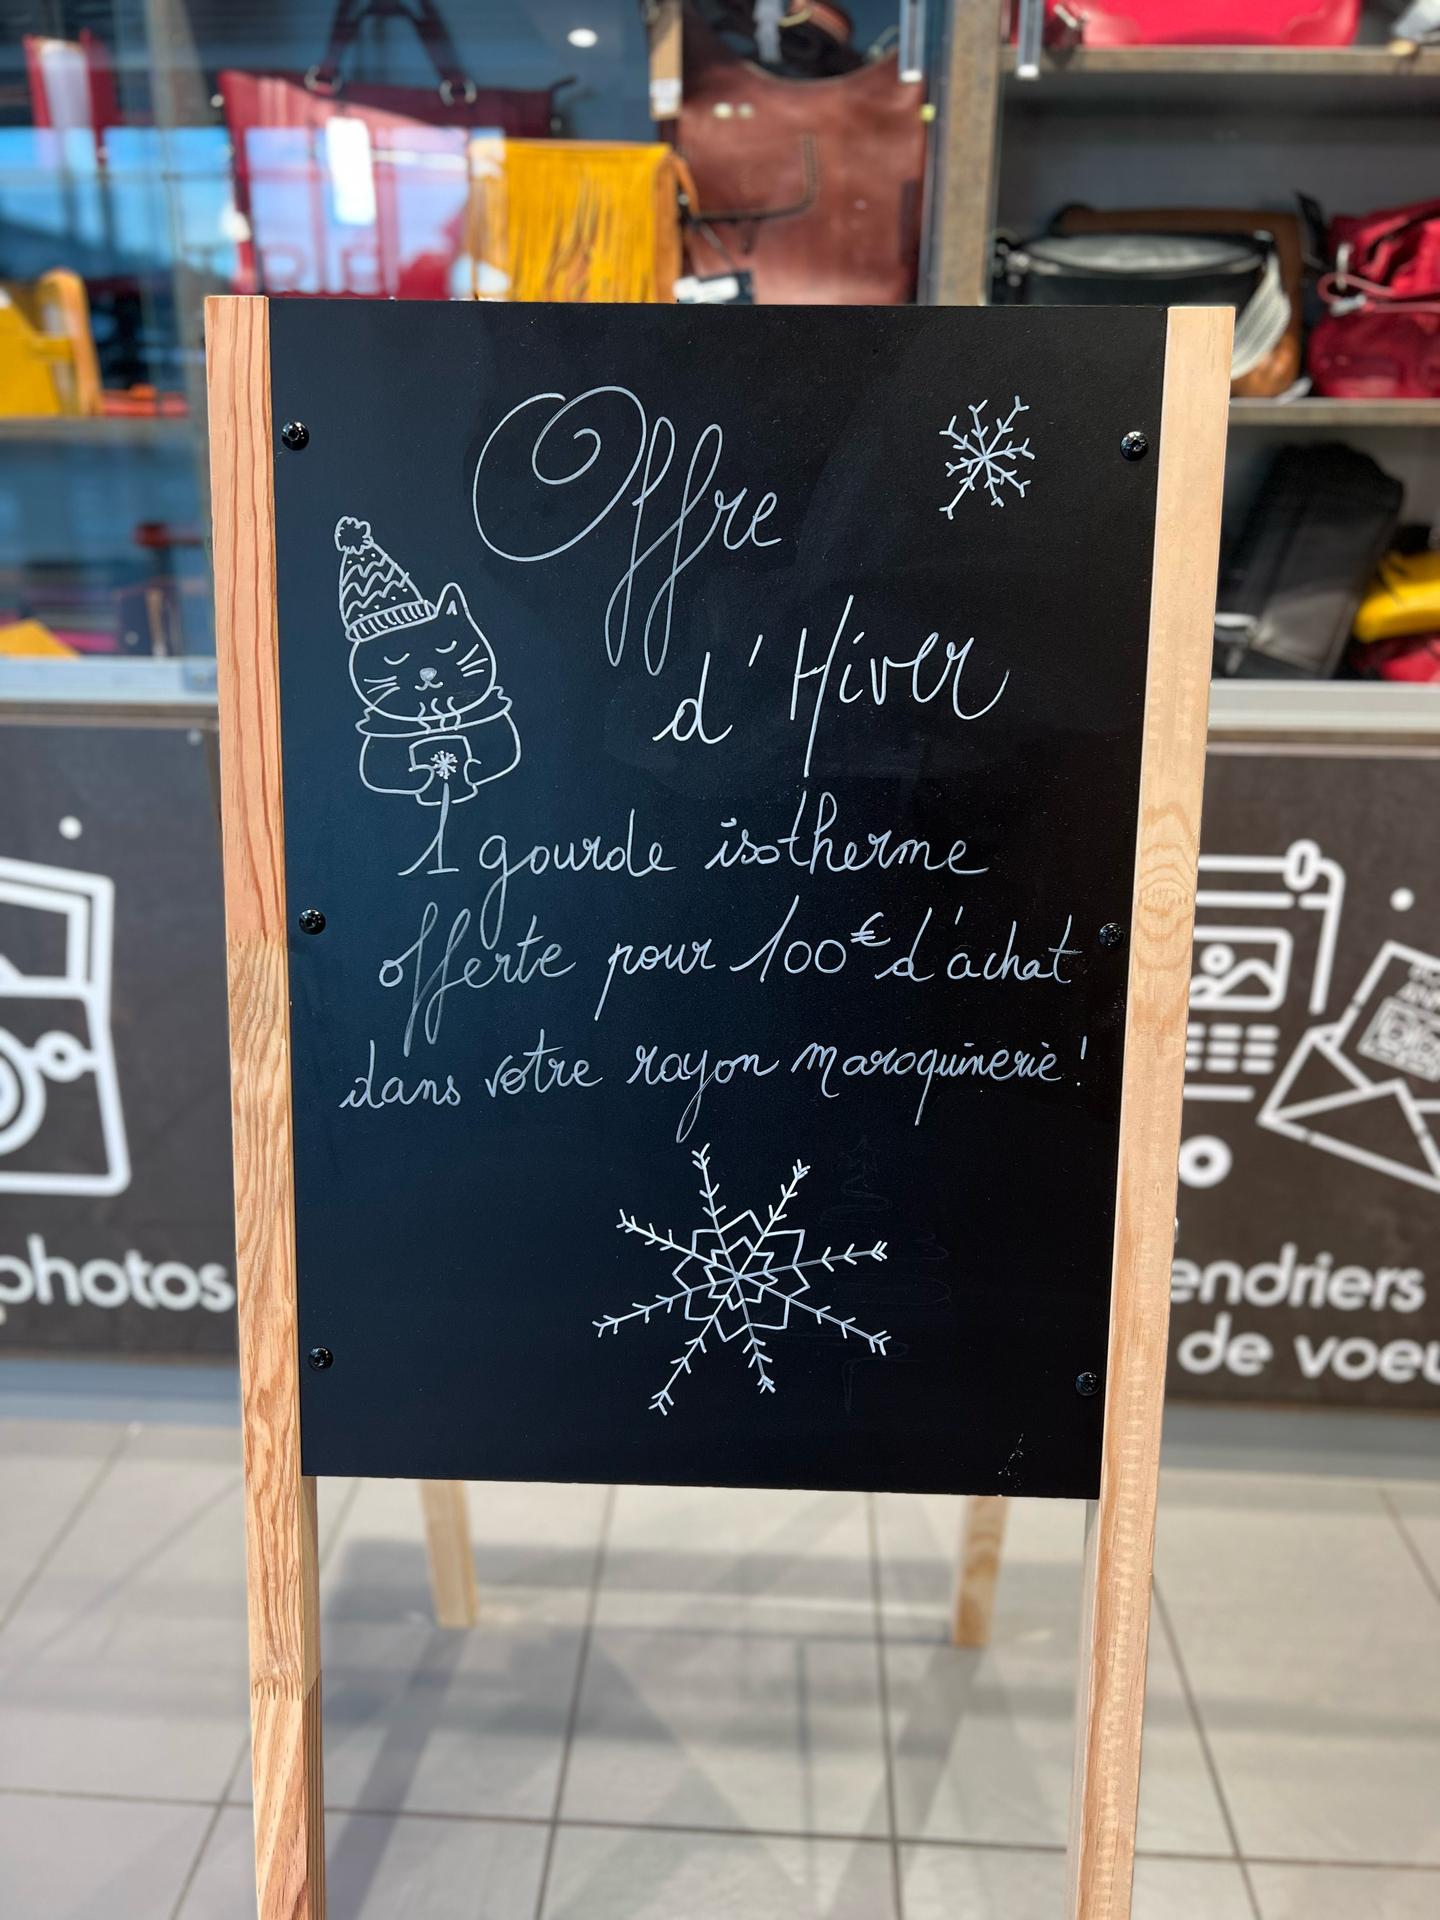 Offre
d'Hiver
1 gourde isotherme
offerte pour 100€ d'achat
dans votre rayon maroquinerie !
photos
endriers
de voeu